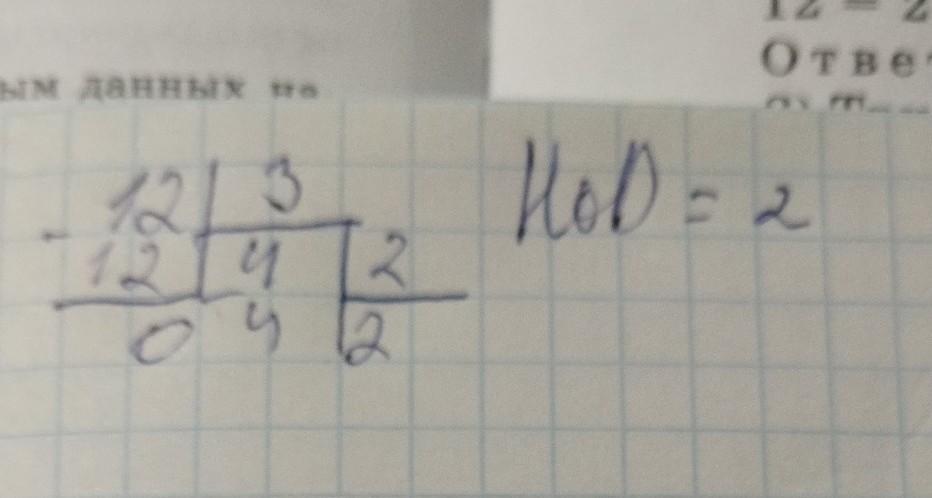 12 = 2
Отве
ым данных
- 12 3
12 4 2
0 4 2
НОД = 2